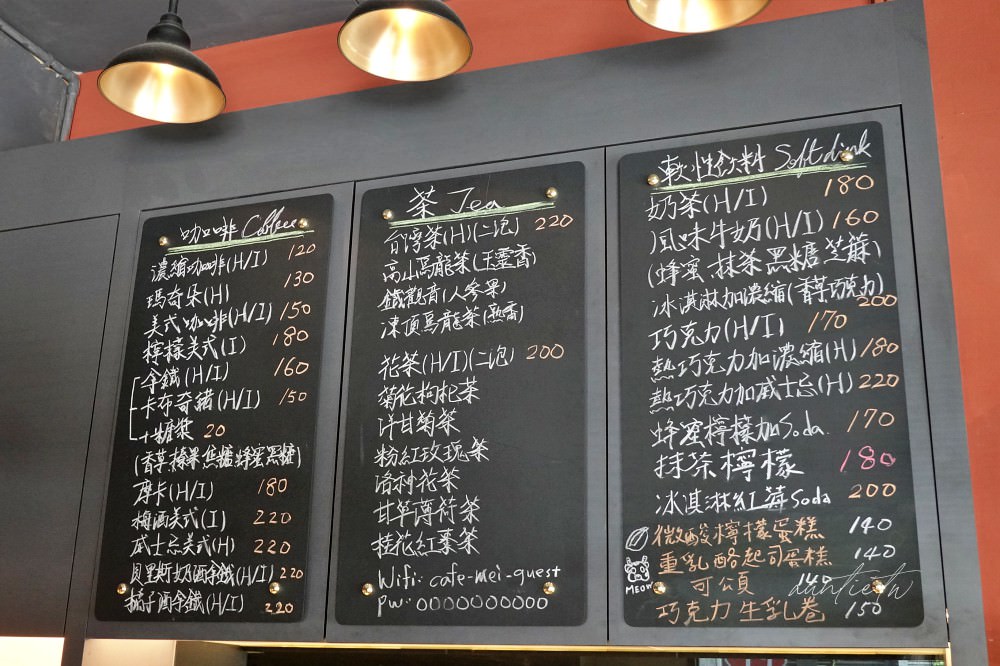 咖啡 Coffee
濃縮咖啡(H/I) 120
瑪奇朵(H) 130
美式咖啡(H/I) 150
檸檬美式(I) 180
拿鐵(H/I) 160
卡布奇諾(H/I) 150
+糖漿 20
(香草榛果焦糖蜂蜜黑糖)
摩卡(H/I) 180
梅酒美式(I) 220
威士忌美式(H) 220
貝里斯奶酒拿鐵(H/I) 220
橘子酒拿鐵(H/I) 220
茶 Tea
台灣茶(H)(二泡) 220
高山烏龍茶(玉露香)
鐵觀音(人參果)
凍頂烏龍茶(熟香)
花茶(H/I)(二泡) 200
菊花枸杞茶
洋甘菊茶
粉紅玫瑰茶
洛神花茶
甘草薄荷茶
桂花紅葉茶
Wifi: cafe-mei-guest
pw: 0000000000
軟性飲料 Soft drink
奶茶(H/I) 180
風味牛奶(H/I) 160
(蜂蜜、抹茶黑糖芝蔴)
冰淇淋加濃縮(香草巧克力) 200
巧克力(H/I) 170
熱巧克力加濃縮(H) 180
熱巧克力加威士忌(H) 220
蜂蜜檸檬加Soda 170
抹茶檸檬 180
冰淇淋紅莓Soda 200
微酸檸檬蛋糕 140
重乳酪起司蛋糕 140
MEOW 可頌 140
巧克力生乳卷 150